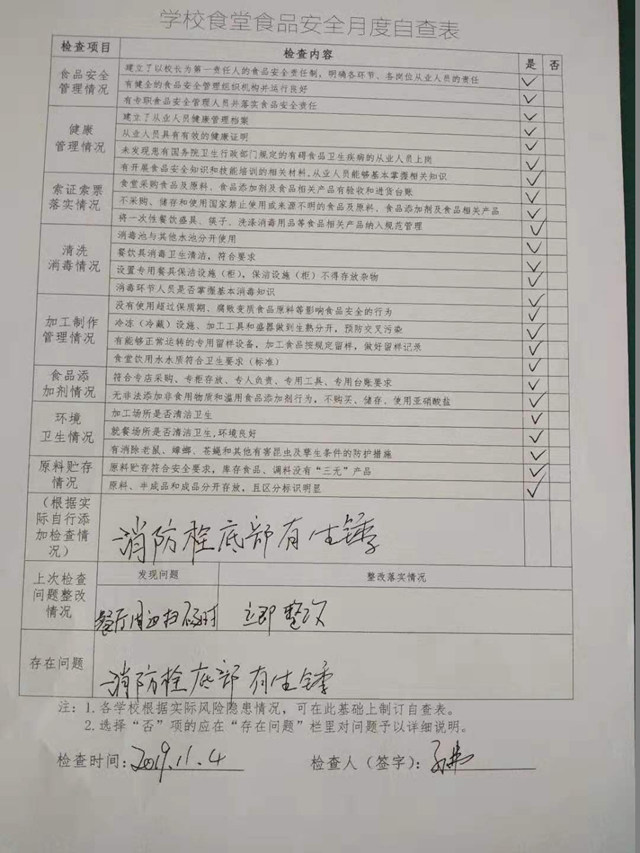 学校食堂食品安全月度自查表
检查项目 检查内容 是 否
食品安全管理情况
建立了以校长为第一责任人的食品安全责任制，明确各环节、各岗位从业人员的责任 ✓
有健全的食品安全管理组织机构并运行良好 ✓
有专职食品安全管理人员并落实食品安全责任 ✓
健康管理情况
建立了从业人员健康管理档案 ✓
从业人员具有有效的健康证明 ✓
未发现患有国务院卫生行政部门规定的有碍食品卫生疾病的从业人员上岗 ✓
有开展食品安全知识和技能培训的相关材料,从业人员能够基本掌握相关知识 ✓
索证索票落实情况
食堂采购食品及原料、食品添加剂及食品相关产品有验收和进货台账 ✓
不采购、储存和使用国家禁止使用或来源不明的食品及原料、食品添加剂及食品相关产品 ✓
将一次性餐饮盛具、筷子、洗涤消毒用品等食品相关产品纳入规范管理 ✓
清洗消毒情况
消毒池与其他水池分开使用 ✓
餐饮具消毒卫生清洁，符合要求 ✓
设置专用餐具保洁设施（柜），保洁设施（柜）不得存放杂物 ✓
消毒环节人员是否掌握基本消毒知识 ✓
加工制作管理情况
没有使用超过保质期、腐败变质食品原料等影响食品安全的行为 ✓
冷冻（冷藏）设施、加工工具和盛器做到生熟分开，预防交叉污染 ✓
有能够正常运转的专用留样设备，加工食品按规定留样，做好留样记录 ✓
食堂饮用水水质符合卫生要求（标准） ✓
食品添加剂情况
符合专店采购、专柜存放、专人负责、专用工具、专用台账要求 ✓
无非法添加非食用物质和滥用食品添加剂行为，不购买、储存、使用亚硝酸盐 ✓
环境卫生情况
加工场所是否清洁卫生 ✓
就餐场所是否清洁卫生,环境良好 ✓
有消除老鼠、蟑螂、苍蝇和其他有害昆虫及孳生条件的防护措施 ✓
原料贮存情况
原料贮存符合安全要求，库存食品、调料没有“三无”产品 ✓
原料、半成品和成品分开存放，且区分标识明显 ✓
（根据实际自行添加检查情况）
消防栓底部有生锈
上次检查问题整改情况
发现问题 整改落实情况
餐厅周边 立即整改
存在问题 消防栓底部有生锈
注：1.各学校根据实际风险隐患情况，可在此基础上制订自查表。
2.选择“否”项的应在“存在问题”栏里对问题予以详细说明。
检查时间:2019.11.4 检查人（签字）: